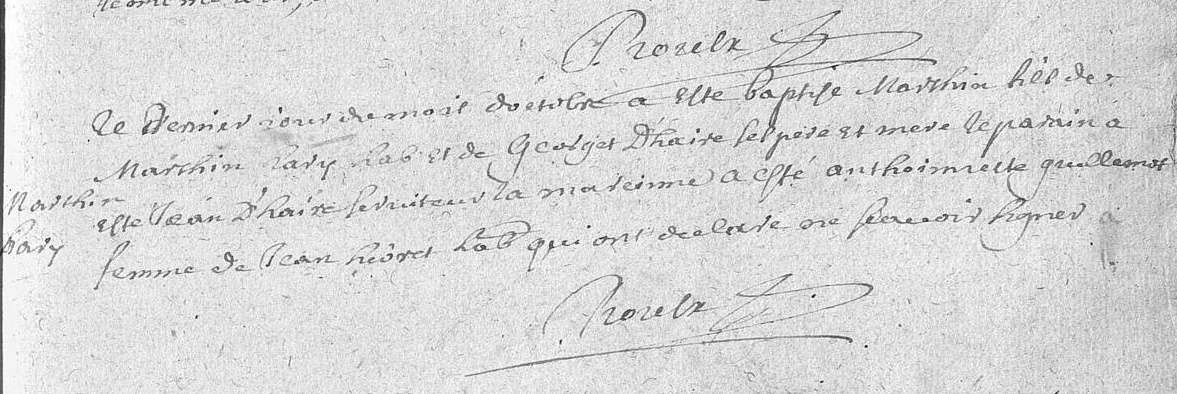 Prouelx
Le dernier iour du moil doctobre a este baptise Marthin fils de
Marthin hary hab et de Georget Dhaire ses pere et mere le parain a
Marthin
hary
este Jean Dhaire seruiteur la mareinne a esté anthoinette quillemot
femme de Jean hab qui ont declare ne scauoir signer
Prouelx